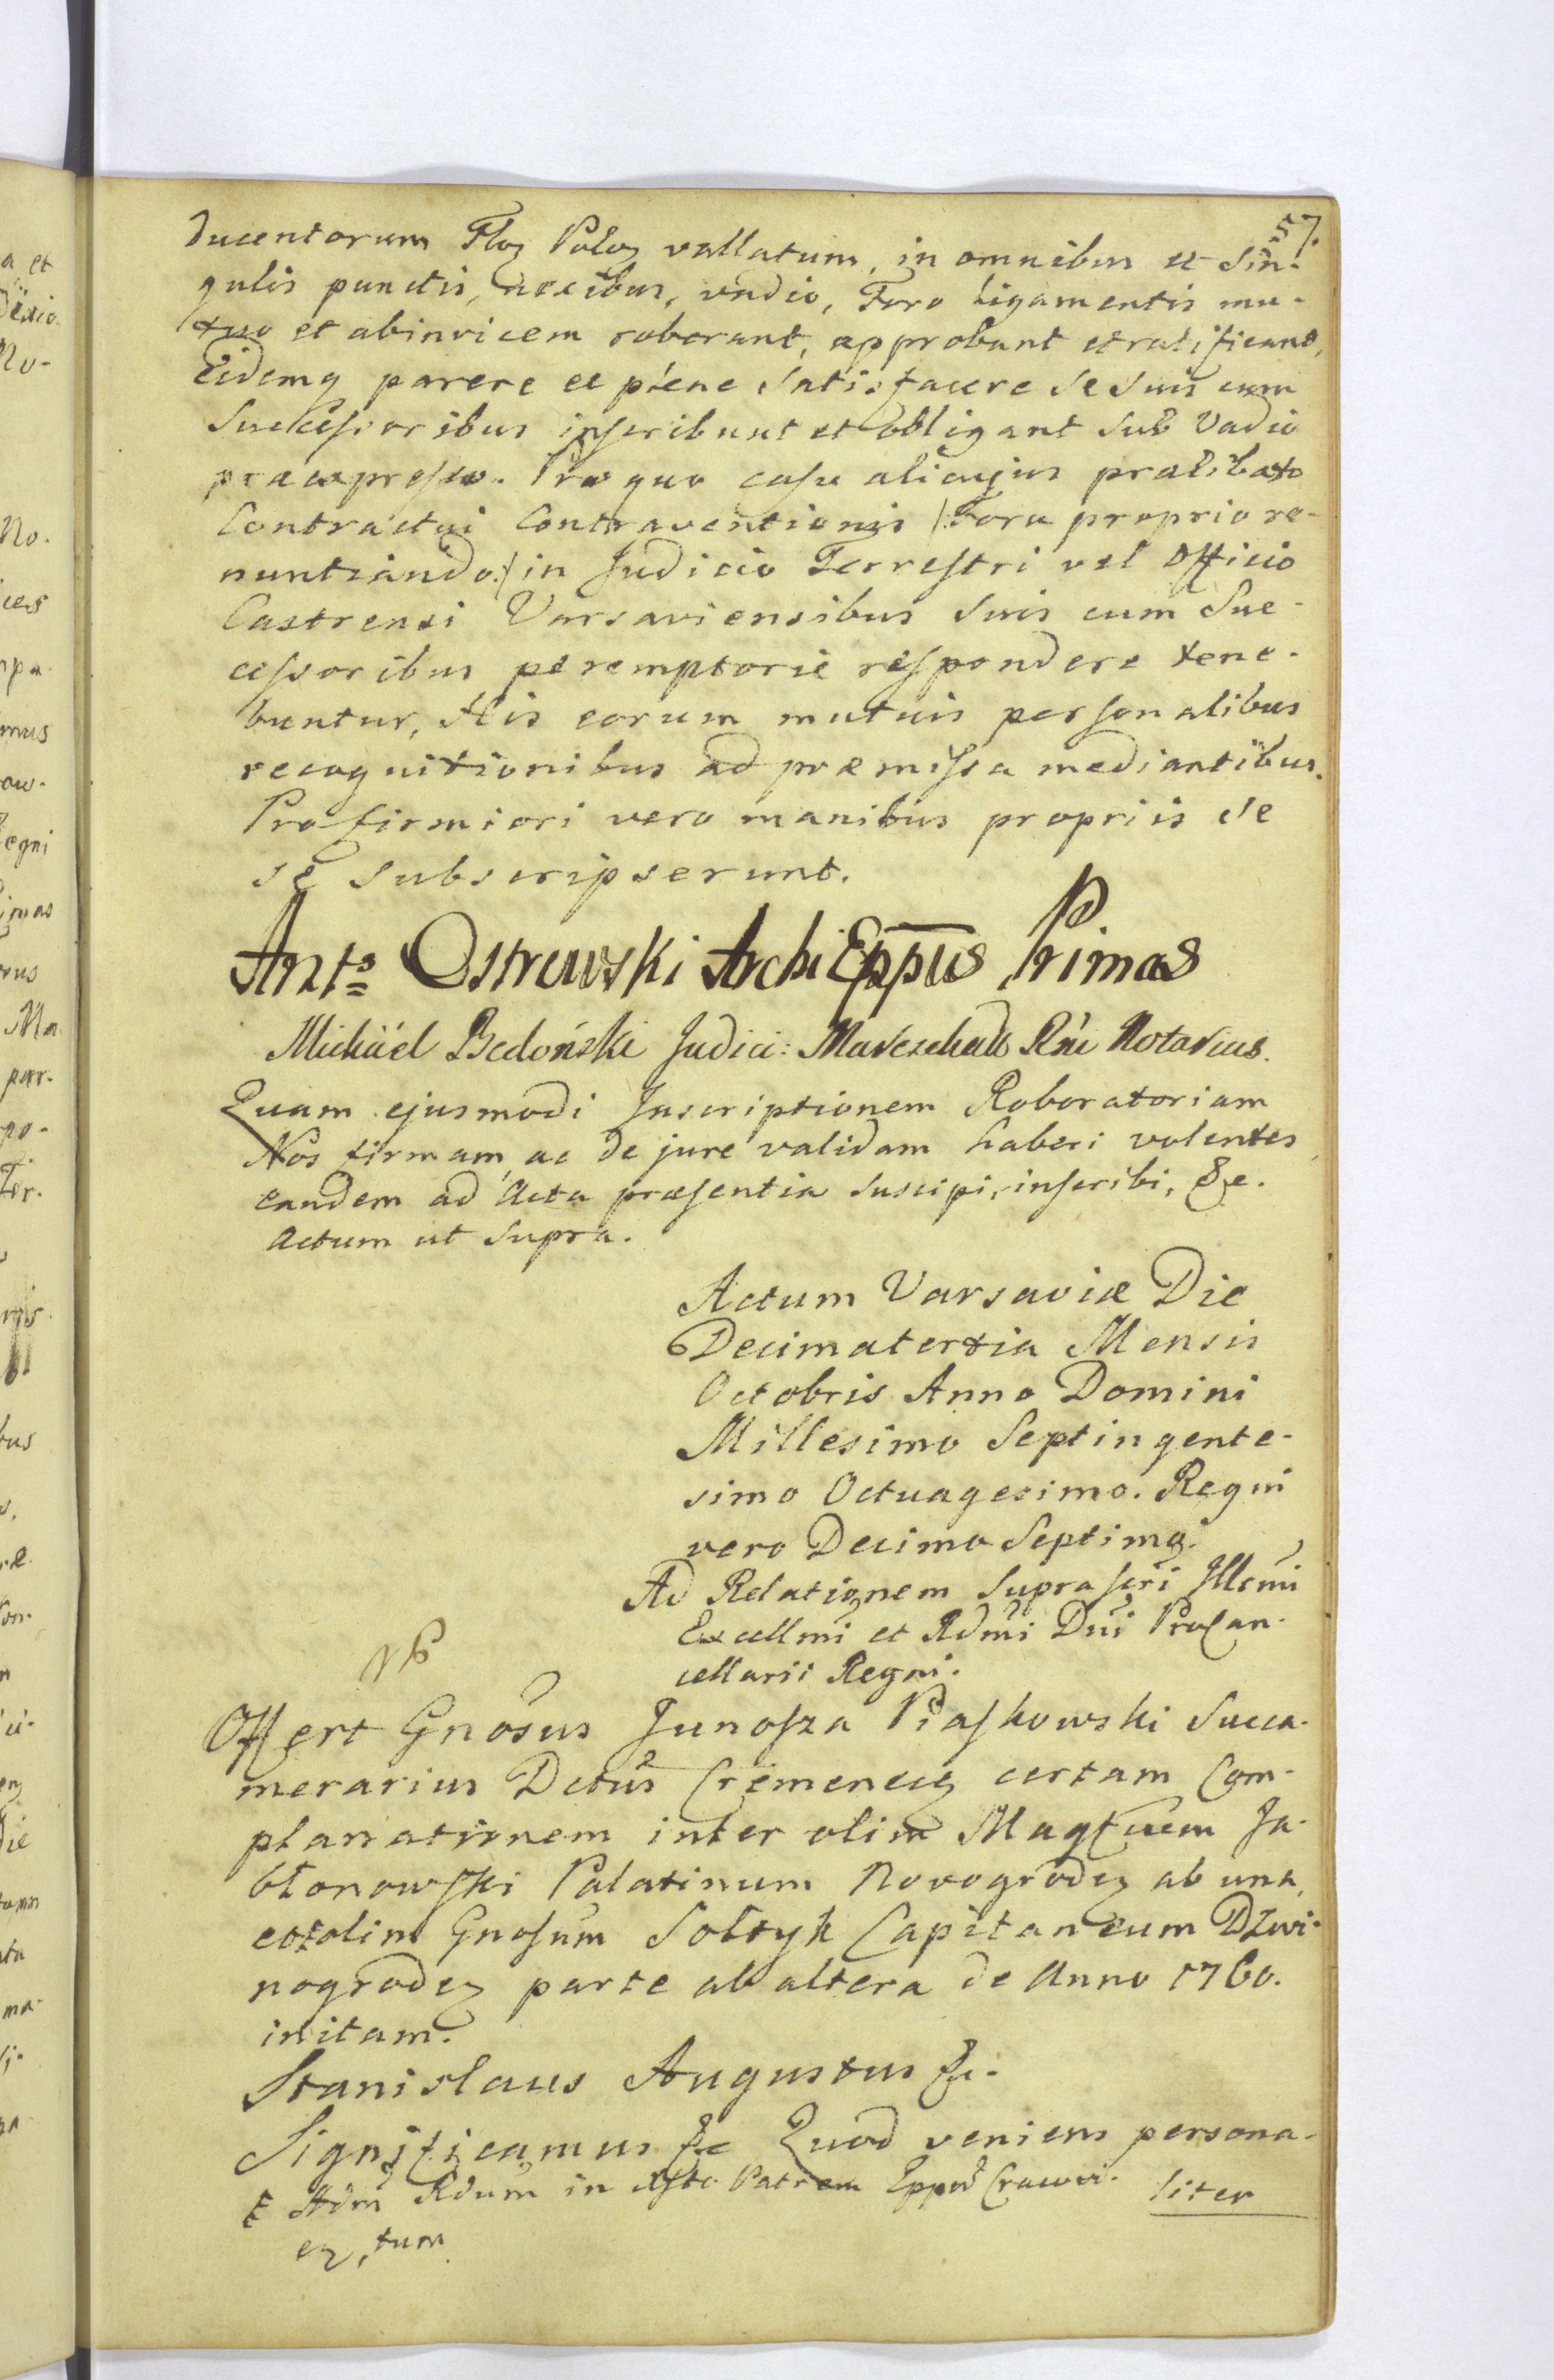 57.
ducentorum Floz Poloz vallatum, in omnibus et Sin-
gulis punctis, nexibus, vadio, Foro ligamentis mu-
tuo et abinvicem roborant, approbant et ratificant,
Eidemq parere et plene Satisfacere se suis cum
Successoribus inscribunt et obligant sub Vadio
praeexpresso. Pro quo casu alicujus praelibato
Contractui Contraventionis /:Foro proprio re-
nuntiando:/ in Judicio Terrestri vel Officio
Castrensi Varsaviensibus suis cum Suc-
cessoribus peremptorie respondere tene-
buntur, His eorum mutuis personalibus
recognitionibus ad praemissa mediantibus.
Pro firmiori vero manibus propriis se
se subscripserunt.
Ants Ostrowski ArchiEppus Primas
Michäel Bedoński Judici: Mareschall Rni Notarius.
Quam ejusmodi Inscriptionem Roboratoriam
Nos firmam, ac de jure validam haberi volentes
eandem ad Acta praesentia suscipi, inscribi, &c.
Actum ut supra.
Actum Varsaviae Die
Decimatertia Mensis
Octobris Anno Domini
Millesimo Septingente-
simo Octuagesimo. Regni
vero Decimo Septimo.
Ad Relationem supra scri Illmi
Excellmi et Rdmi Dni ProCan-
cellarii Regni.
Offert Gnosus Junosza Piaskowski Succa-
merarius Dctus Cremenecz certam Com-
planationem inter olim Magfcum Ja-
błonowski Palatinum Novogrodcz ab una,
et olim Gnosum Sołtyk Capitaneum Dzwi-
nogrodcz parte ab altera de Anno 1760.
initam.
Stanislaus Augustus &c.
Significamus &c Quod veniens persona-
liter
Rdum in Xsto Patrem Eppum Cracovi-
ez, tum